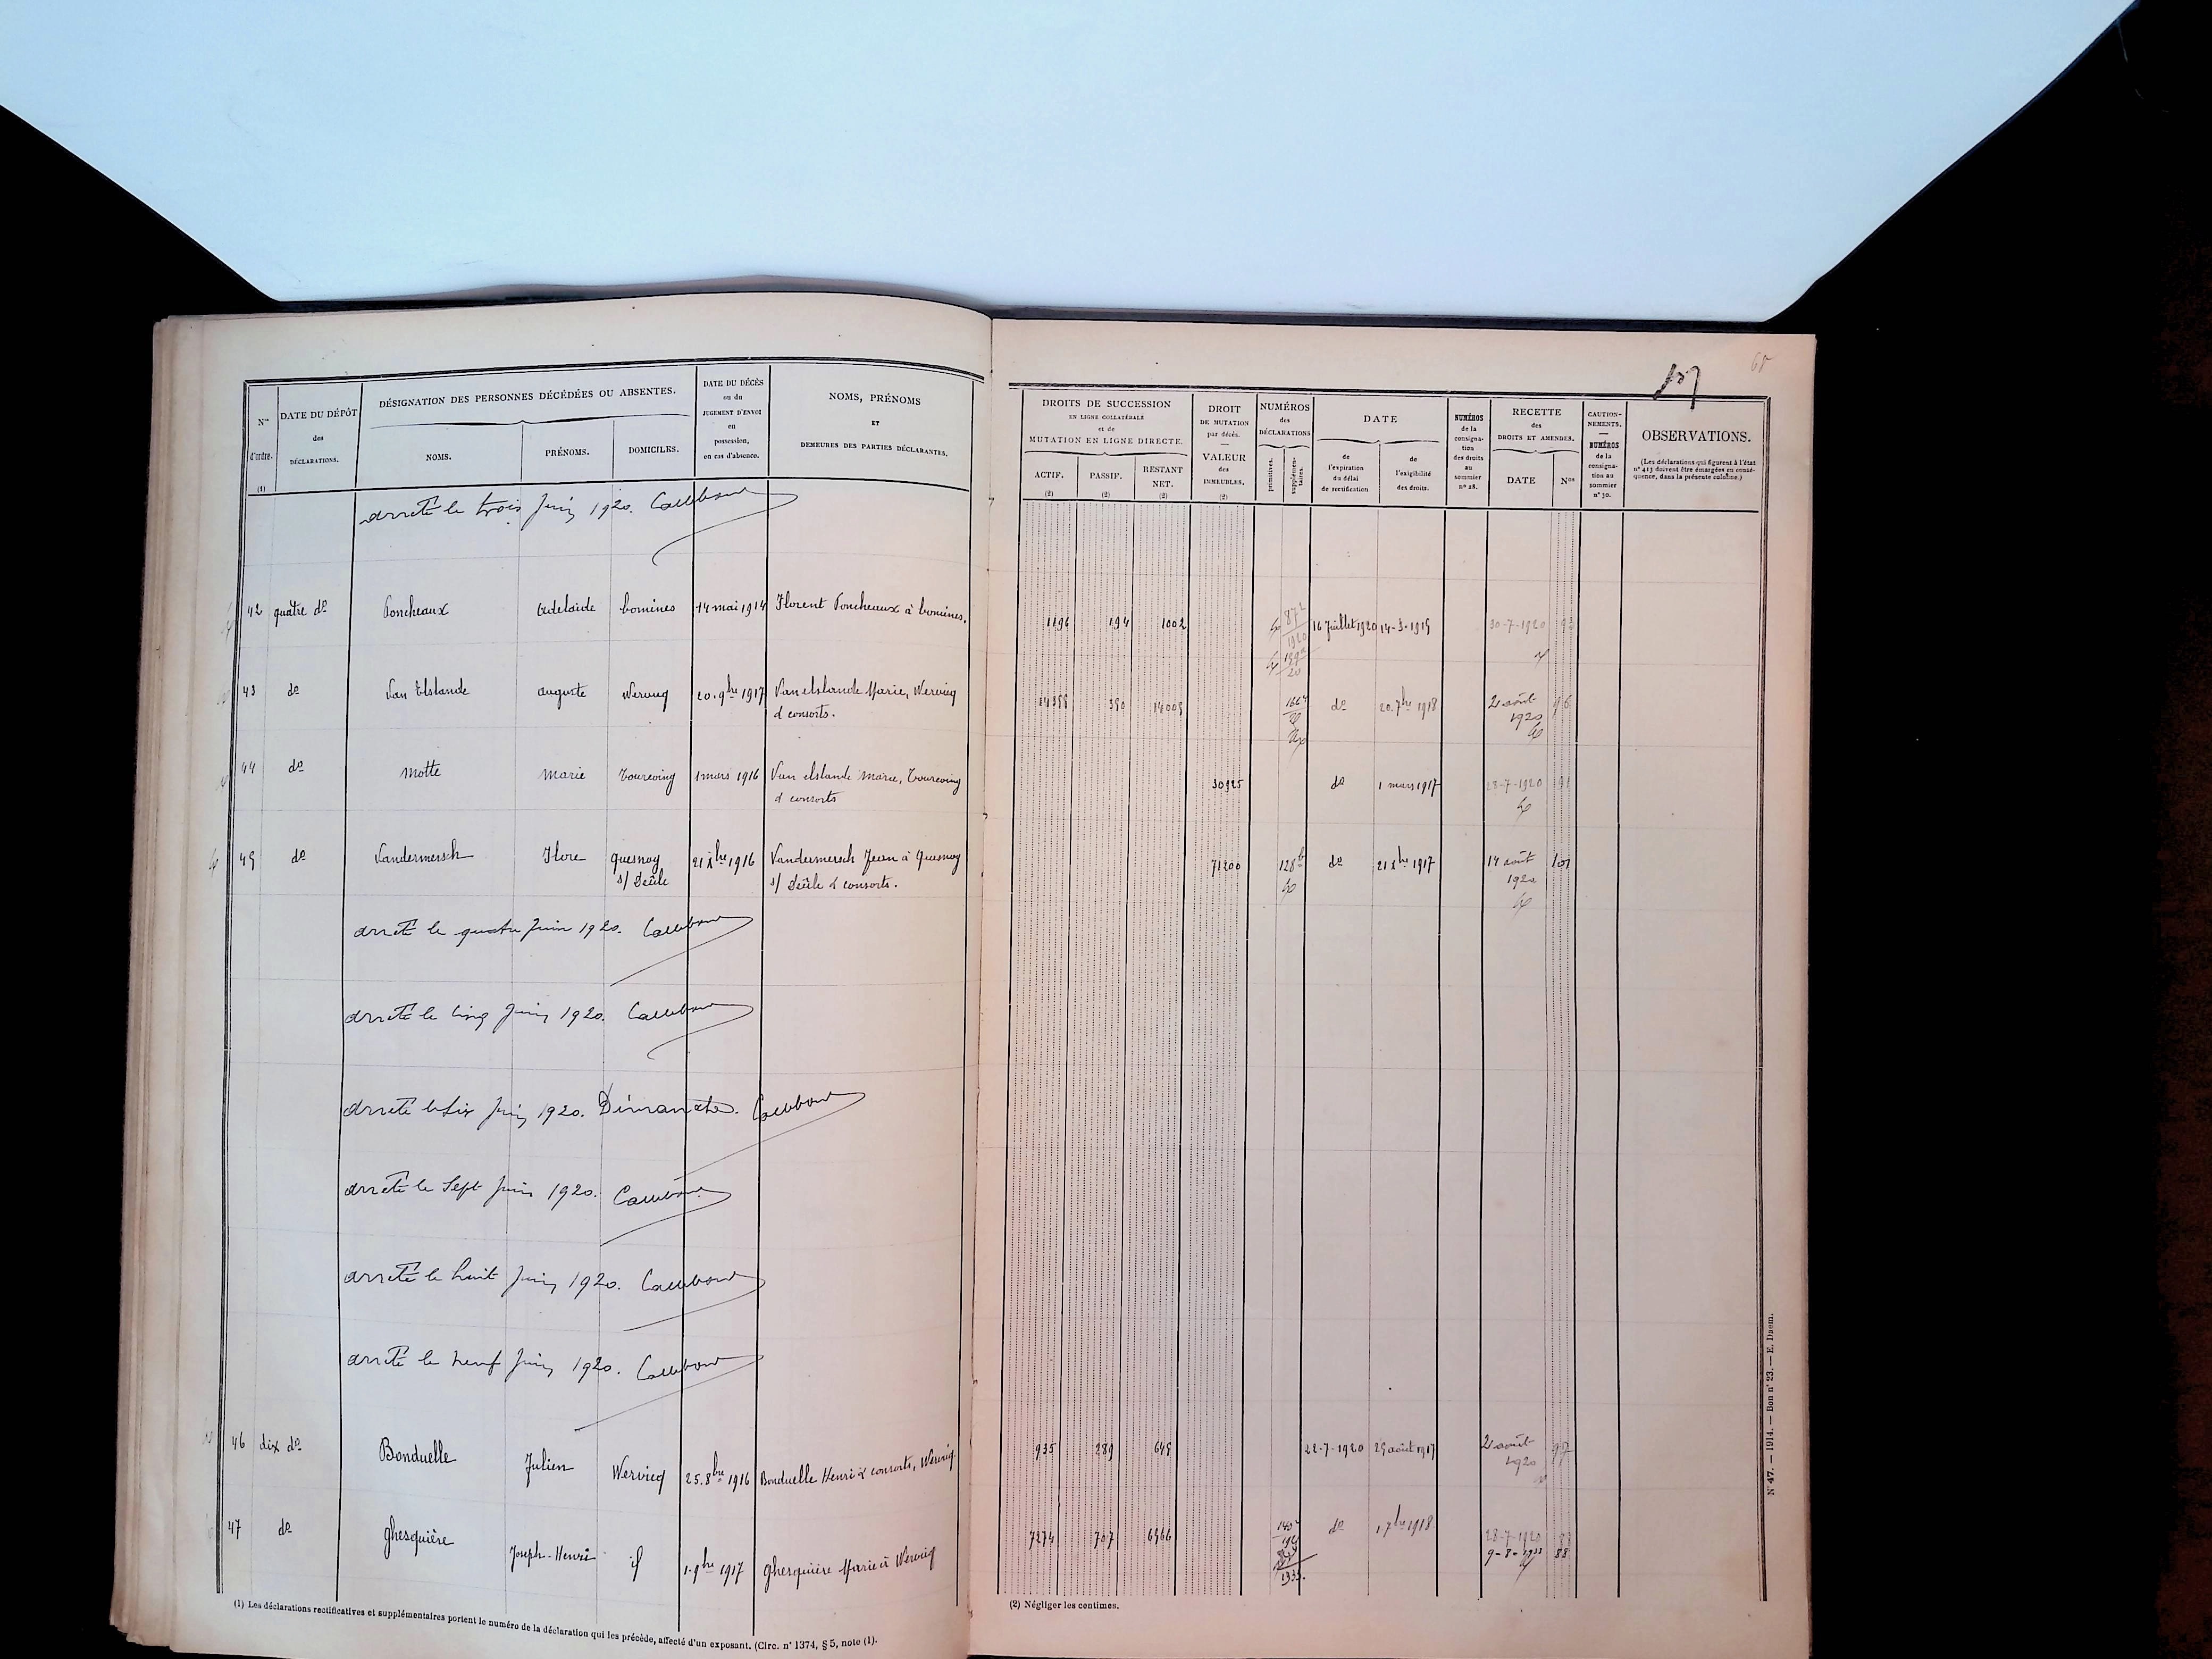 N°s d'ordre. (1)
DATE DU DÉPÔT des DÉCLARATIONS.
DÉSIGNATION DES PERSONNES DÉCÉDÉES OU ABSENTES.
NOMS.
PRÉNOMS.
DOMICILES.
DATE DU DÉCÈS ou du JUGEMENT D'ENVOI en possession, en cas d'absence.
NOMS, PRÉNOMS ET DEMEURES DES PARTIES DÉCLARANTES.
arrêté le trois Juin 1920.
42 quatre do Poncheaux Adelaïde Comines 14 mai 1914 Florent Poncheaux à Comines.
43 do Van Elslande Auguste Wervicq 20.9bre 1917 Van elslande Marie, Wervicq
& consorts.
44 do Motte Marie Tourcoing 1 mars 1916 Van elslande Marie, Tourcoing
& consorts
45 do Vandermersch Flore Quesnoy 21 Xbre 1916 Vandermersch Jean à Quesnoy
s/ Deûle s/ Deûle & consorts.
arrêté le quatre Juin 1920.
arrêté le cinq Juin 1920.
arrêté le six Juin 1920. Dimanche.
arrêté le Sept Juin 1920.
arrêté le huit Juin 1920.
arrêté le neuf Juin 1920.
46 dix do Bonduelle Julien Wervicq 25.8bre 1916 Bonduelle Henri & consorts, Wervicq.
47 do Ghesquière Joseph-Henri if 1.9bre 1917 Ghesquière Marie à Wervicq
(1) Les déclarations rectificatives et supplémentaires portent le numéro de la déclaration qui les précède, affecté d'un exposant. (Circ. n° 1374, § 5, note (1).
DROITS DE SUCCESSION EN LIGNE COLLATÉRALE et de MUTATION EN LIGNE DIRECTE.
ACTIF. (2)
PASSIF. (2)
RESTANT NET. (2)
DROIT DE MUTATION par décès. — VALEUR des IMMEUBLES. (2)
NUMÉROS des DÉCLARATIONS
primitives.
supplémentaires.
DATE
de l'expiration du délai de rectification
de l'exigibilité des droits.
NUMÉROS de la consignation des droits au sommier n° 28.
RECETTE des DROITS ET AMENDES.
DATE
Nos
CAUTIONNEMENTS. — NUMÉROS de la consignation au sommier n° 30.
OBSERVATIONS.
(Les déclarations qui figurent à l'état n° 413 doivent être émargées en conséquence, dans la présente colonne.)
1196 194 1002 16 Juillet 1920 14-3-1915 30-7-1920 93
14395 390 14005 do 20.7bre 1918 2 août
1920
30925 do 1 mars 1917 28-7-1920 91
71200 do 21 Xbre 1917 14 août
1920
935 289 645 22-7-1920 25 août 1917 2 août 97
1920
7274 707 6566 do 1.7bre 1918 28-7-1920
9-8-1933 88
(2) Négliger les centimes.
N° 47. — 1914. — Bon n° 23. — E. Daem.